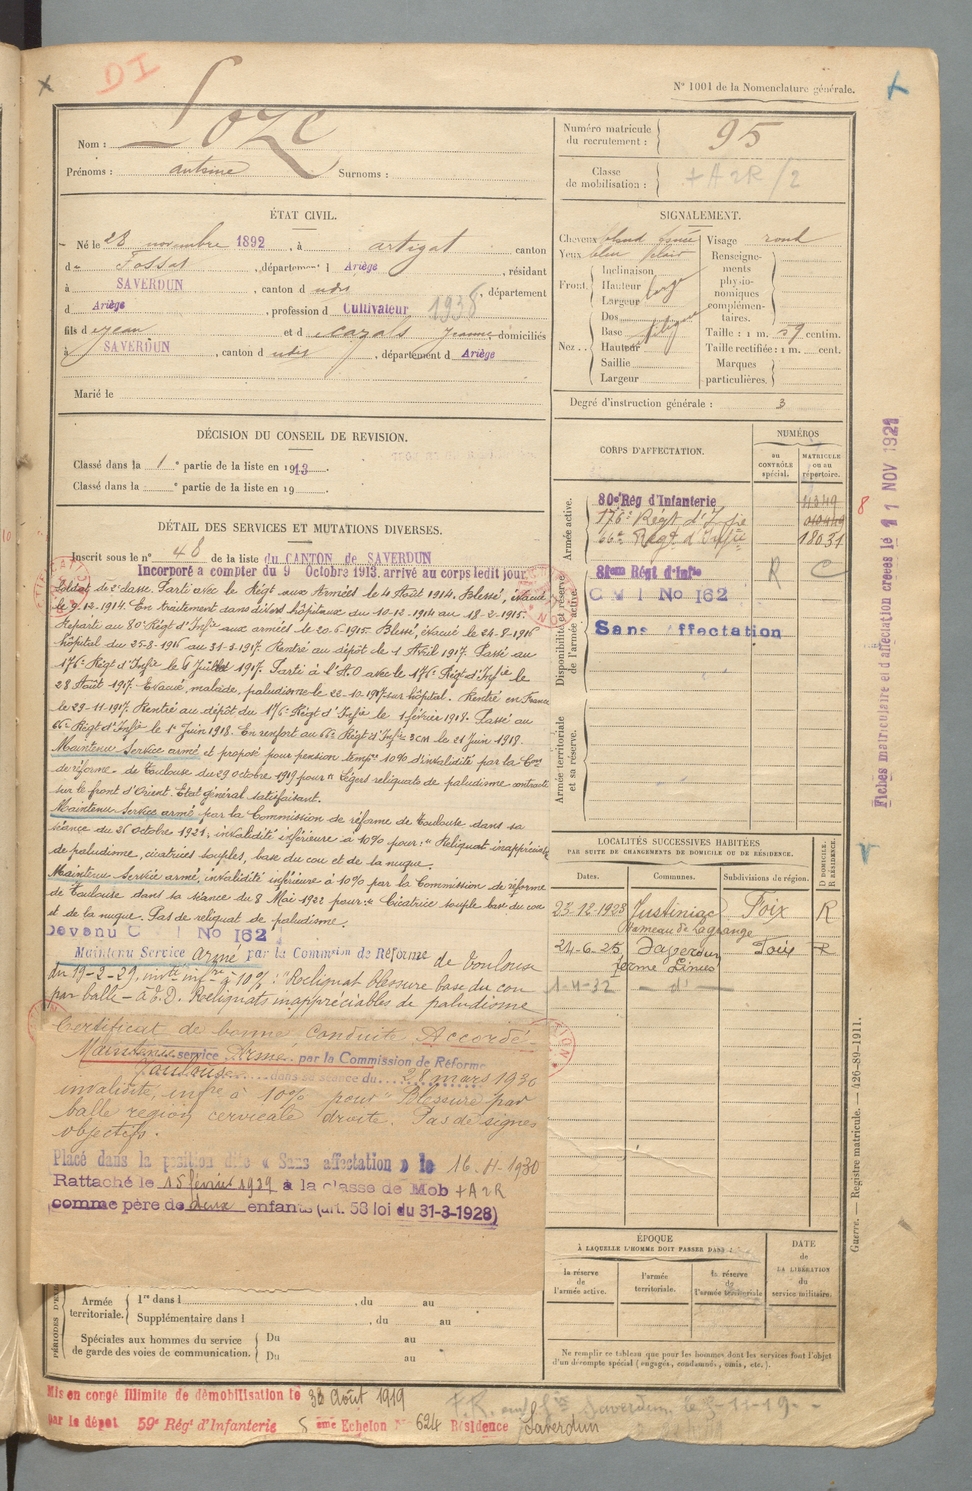 DI
N° 1001 de la Nomenclature générale.
Nom : Loze
Prénoms : antoine Surnoms :
Numéro matricule du recrutement : 95
Classe de mobilisation : + A 2 R / 2
ÉTAT CIVIL.
Né le 28 novembre 1892, à artigat canton
de Fossat, département d Ariège, résidant
à SAVERDUN, canton d udit, département
d Ariège, profession d Cultivateur 1938
fils d e jean et d e cazals Jeanne, domiciliés
à SAVERDUN, canton d udit, département d Ariège
Marié le
SIGNALEMENT.
Cheveux blond foncé
Yeux bleu
Front. Inclinaison
Hauteur
Largeur large
Nez.. Dos
Base
Hauteur
Saillie
Largeur
Visage rond
Renseignements physionomiques complémentaires.
Taille : 1 m. 59 centim.
Taille rectifiée : 1 m. cent.
Marques particulières.
Degré d'instruction générale : 3
DÉCISION DU CONSEIL DE REVISION.
Classé dans la 1e partie de la liste en 1913.
Classé dans la e partie de la liste en 19
DÉTAIL DES SERVICES ET MUTATIONS DIVERSES.
Inscrit sous le n° 48 de la liste du CANTON de SAVERDUN
Incorporé à compter du 9 Octobre 1913. arrivé au corps ledit jour
Soldat de 2e classe. Parti avec le Régt aux Armées le 4 Août 1914. Blessé, évacué
le 9.12.1914. En traitement dans divers hôpitaux du 10-12-1914 au 18-2-1915.
Reparti au 80e Régt d'Infie aux armées le 20-6-1915. Blessé, évacué le 24-8-1916
hôpital du 25-8-1916 au 31-3-1917. Rentré au dépôt le 1 Avril 1917. Passé au
176e Régt d'Infie le 6 Juillet 1917. Parti à l'A.O avec le 176e Régt d'Infie le
28 Août 1917. Evacué, malade, paludisme le 22-10-1917 sur hôpital. Rentré en France
le 29-11-1917. Rentré au dépôt du 176e Régt d'Infie le 1 février 1918. Passé au
66e Régt d'Infie le 1er Juin 1918. En renfort au 66e Régt d'Infie le 21 Juin 1918.
Maintenu Service armé et proposé pour pension tempre 10% d'invalidité par la Con
de réforme de Toulouse du 29 octobre 1919 pour "Légers reliquats de paludisme contracté
sur le front d'Orient. Etat général satisfaisant.
Maintenu Service armé par la Commission de réforme de Toulouse dans sa
séance du 26 octobre 1921, invalidité inférieure à 10% pour: "Reliquat inappréciable
de paludisme, cicatrices souples, base du cou et de la nuque.
Maintenu Service armé, invalidité inférieure à 10% par la Commission de réforme
de Toulouse dans sa séance du 8 Mai 1922 pour: "Cicatrice souple base du cou
et de la nuque. Pas de reliquat de paludisme.
Devenu C M I No 162
Maintenu Service Armé par la Commission de Réforme de Toulouse
du 19-2-29, invté infre à 10%: "Reliquat blessure base du cou
par balle - à T.D. Reliquats inappréciables de paludisme
Certificat de bonne Conduite Accordé.
Maintenu service Armé par la Commission de Réforme
Toulouse dans sa séance du 28 mars 1930
invalidité, infre à 10% pour "Blessure par
balle région cervicale droite. Pas de signes
objectifs.
Placé dans la position dite « Sans affectation » le 16-4-1930
Rattaché le 15 février 1929 à la classe de Mob + A 2 R
comme père de deux enfants (art. 58 loi du 31-3-1928)
CORPS D'AFFECTATION.
NUMÉROS
au CONTRÔLE spécial.
MATRICULE ou au répertoire.
Armée active.
80e Rég d'Infanterie 4249
176e Régt d'Infie
66e Régt d'Infie 18031
8
Disponibilité et réserve de l'armée active.
81em Régt d'Infie R C
C M I No 162
Sans Affectation
Armée territoriale et sa réserve.
LOCALITÉS SUCCESSIVES HABITÉES
PAR SUITE DE CHANGEMENTS DE DOMICILE OU DE RÉSIDENCE.
Dates. Communes. Subdivisions de région. D DOMICILE. R RÉSIDENCE.
23-12-1923 Justiniac Foix R
Hameau de Lagrange
24-6-25 Foix R
ferme
1-4-32 — d° —
ÉPOQUE
À LAQUELLE L'HOMME DOIT PASSER DANS :
la réserve de l'armée active.
l'armée territoriale.
la réserve de l'armée territoriale
DATE de LA LIBÉRATION du service militaire.
Ne remplir ce tableau que pour les hommes dont les services font l'objet
d'un décompte spécial (engagés, condamnés, omis, etc.).
Armée territoriale. 1re dans l , du au
Supplémentaire dans l , du au
Spéciales aux hommes du service de garde des voies de communication. Du au
Du au
Mis en congé illimité de démobilisation le 30 Août 1919
par le dépôt 59e Rég d'Infanterie 5 ème Echelon N° 624 Résidence Saverdun
Fiches matriculaire et d'affectation créées le 11 NOV 1921
Guerre. — Registre matricule. — 426-89-1911.